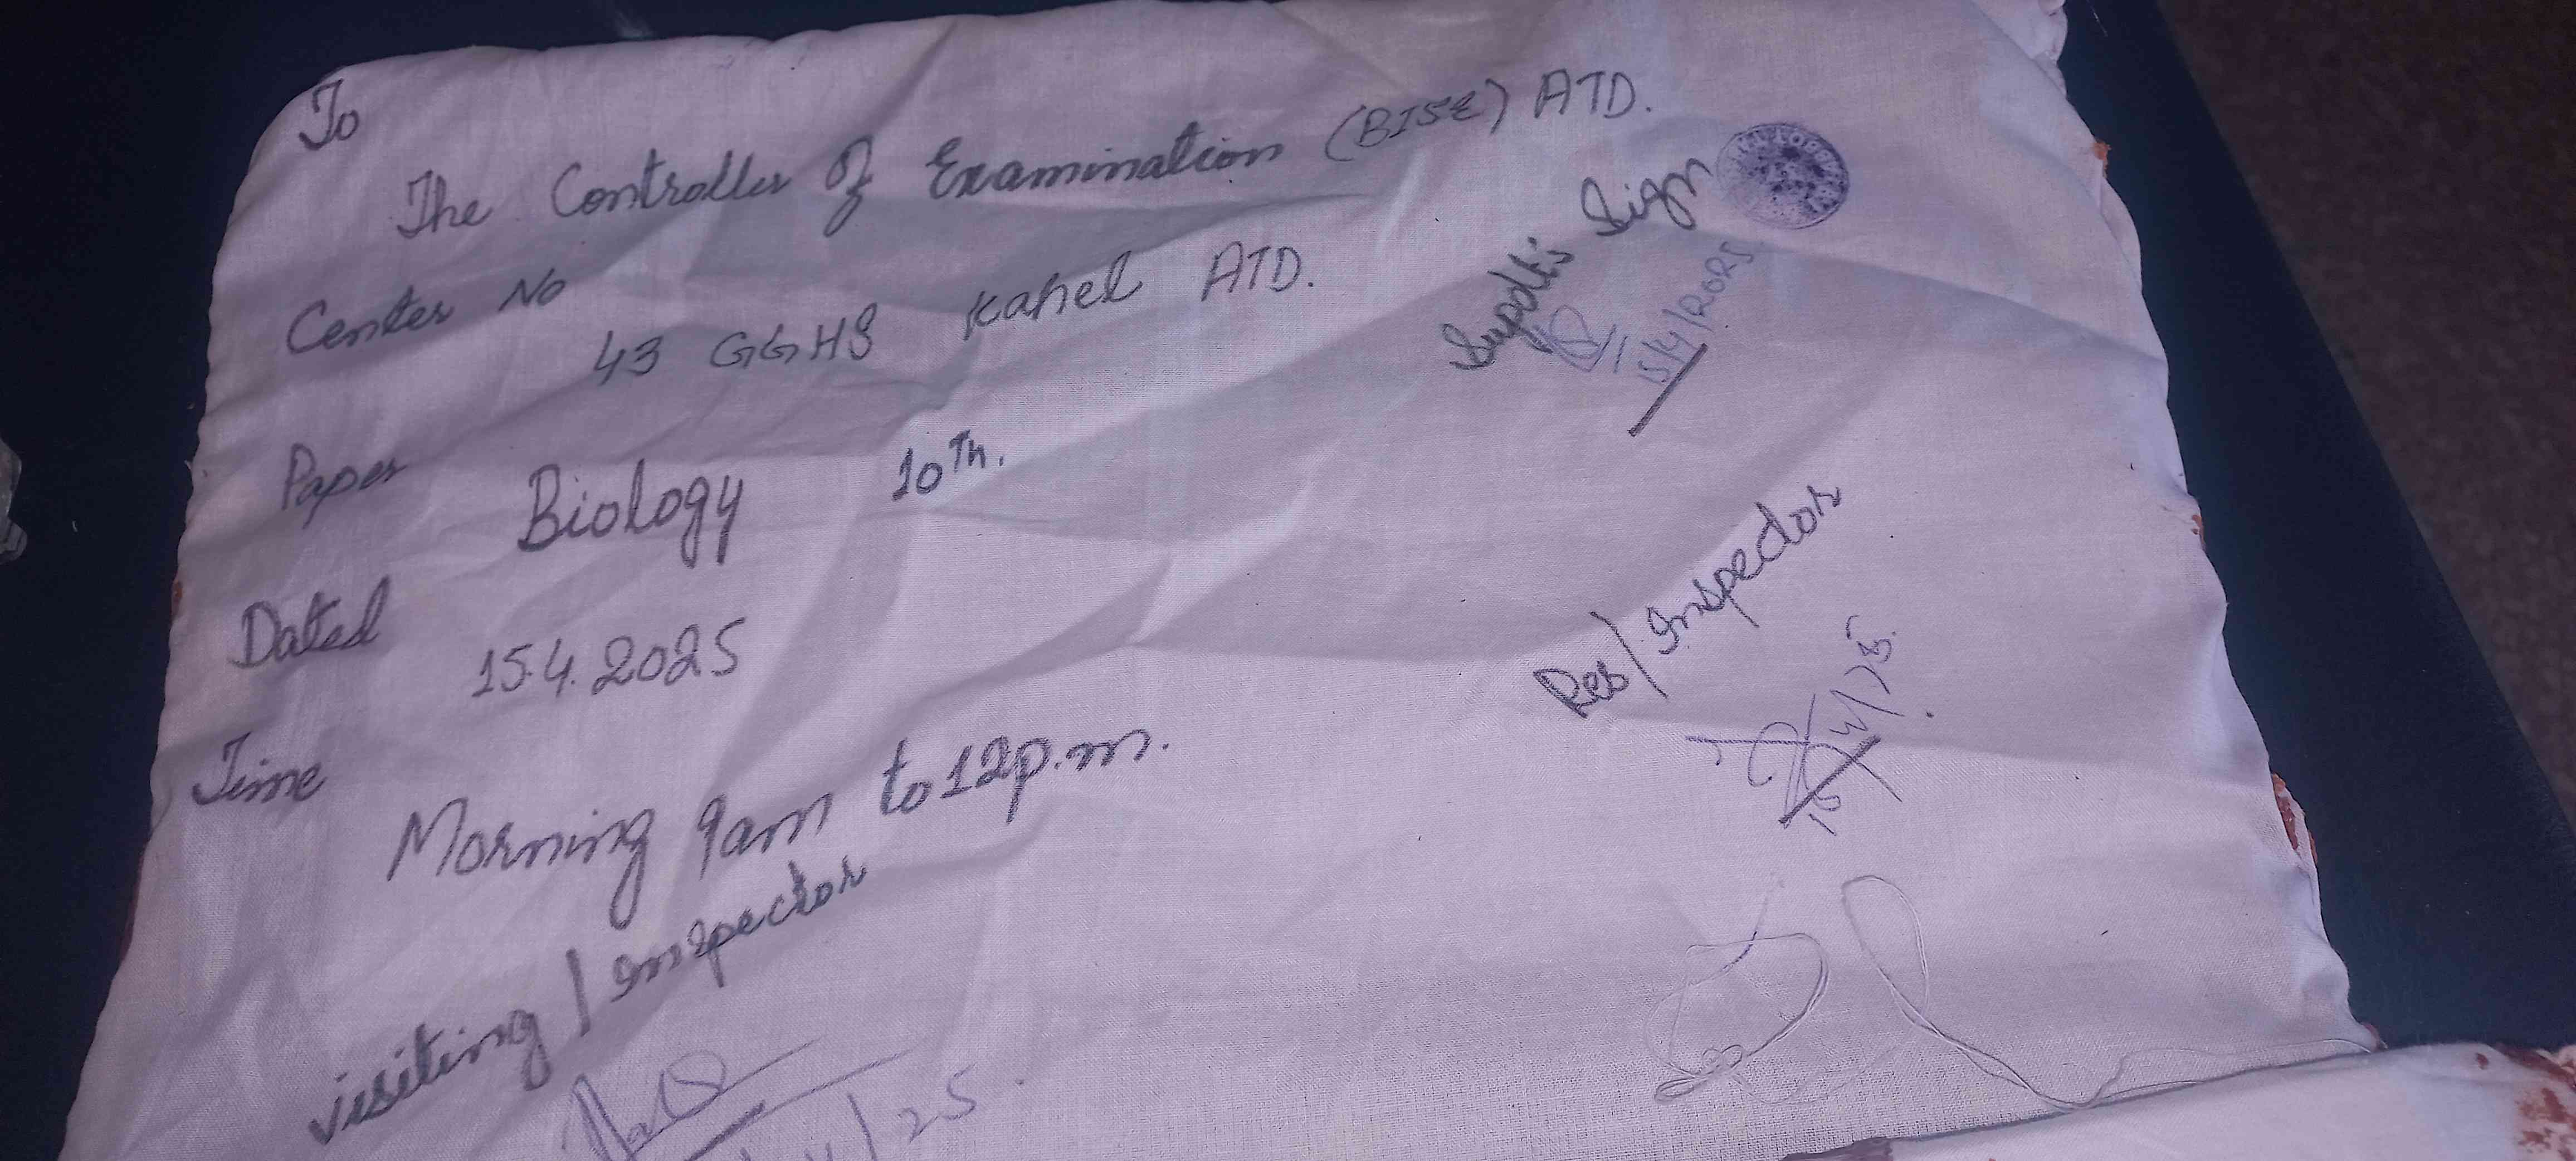 To
The Controller of Examination (BISE) ATD.
Center No
43 GGHS Kahel ATD.
Paper
Biology 10Th.
Dated
15.4.2025
Time
Morning 9am to 12p.m.
visiting / Inspector
25
Supdt's Sign
15/4/2025
Res/Inspector